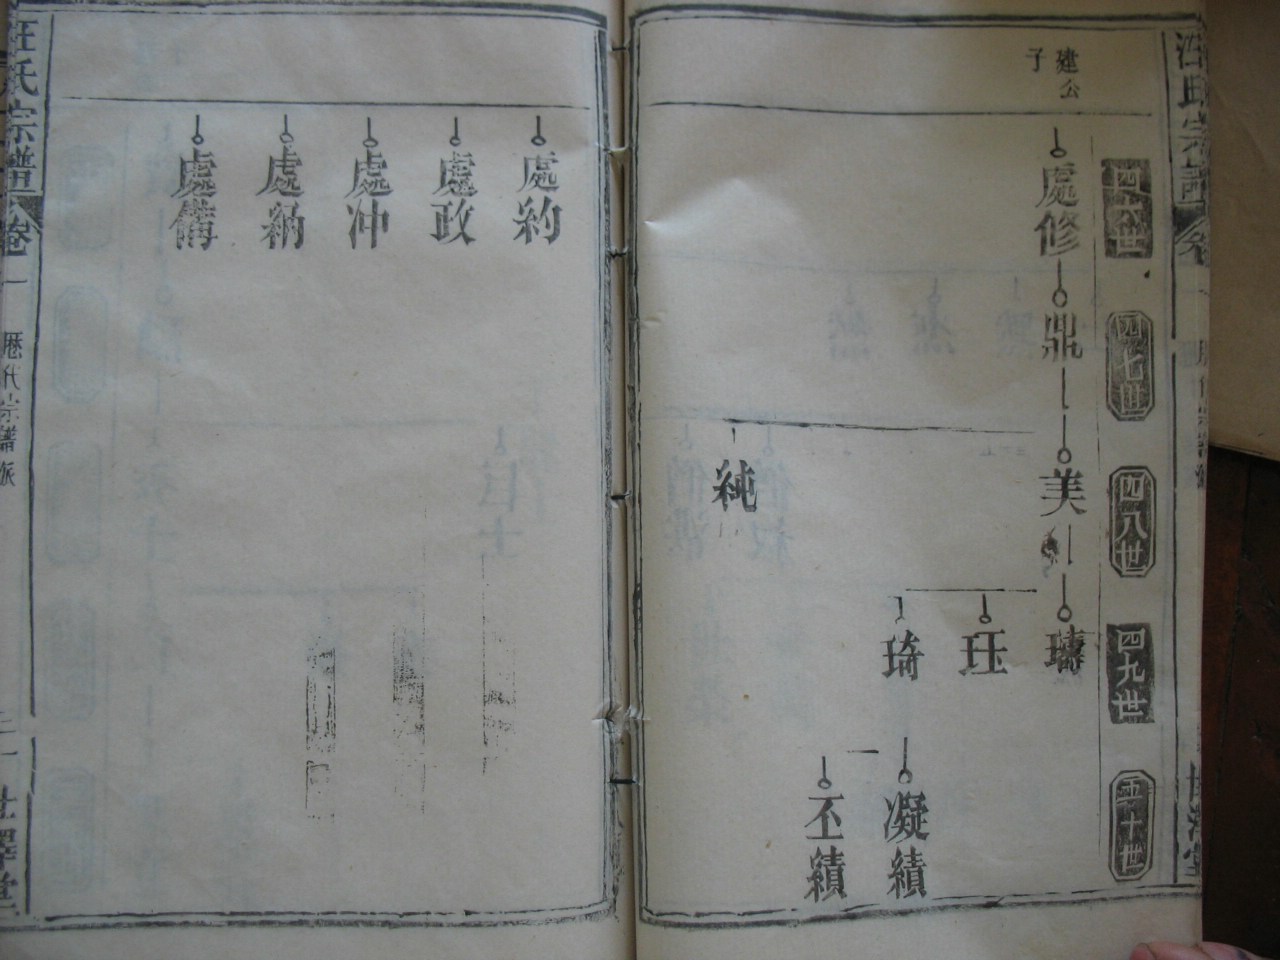 汪氏宗譜
卷一
建公
子
四六世
四七世
四八世
四九世
五十世
處修
鼎
美
純
璹
珏
琦
凝績
丕績
處約
處政
處冲
處納
處備
汪氏宗譜
卷一
歷代宗譜派
世澤堂